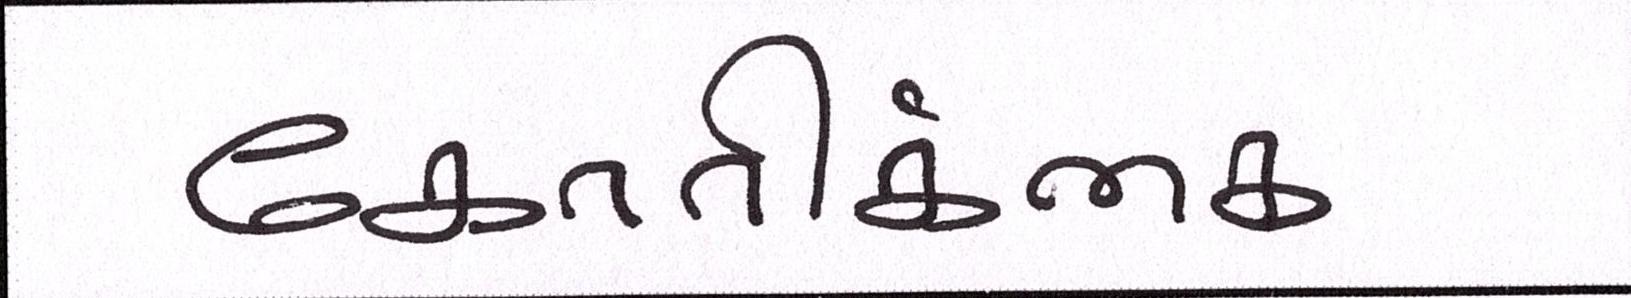 கோரிக்கை